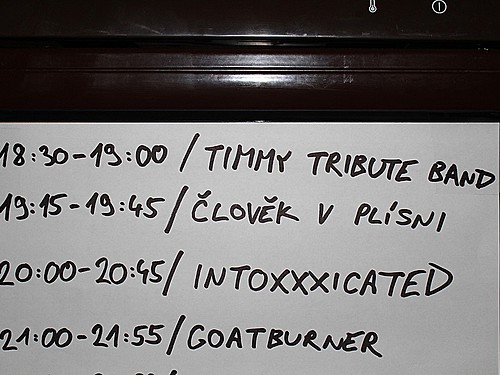 18:30-19:00 / TIMMY TRIBUTE BAND
19:15-19:45 / ČLOVĚK V PLÍSNI
20:00-20:45 / INTOXXXICATED
21:00-21:55 / GOATBURNER